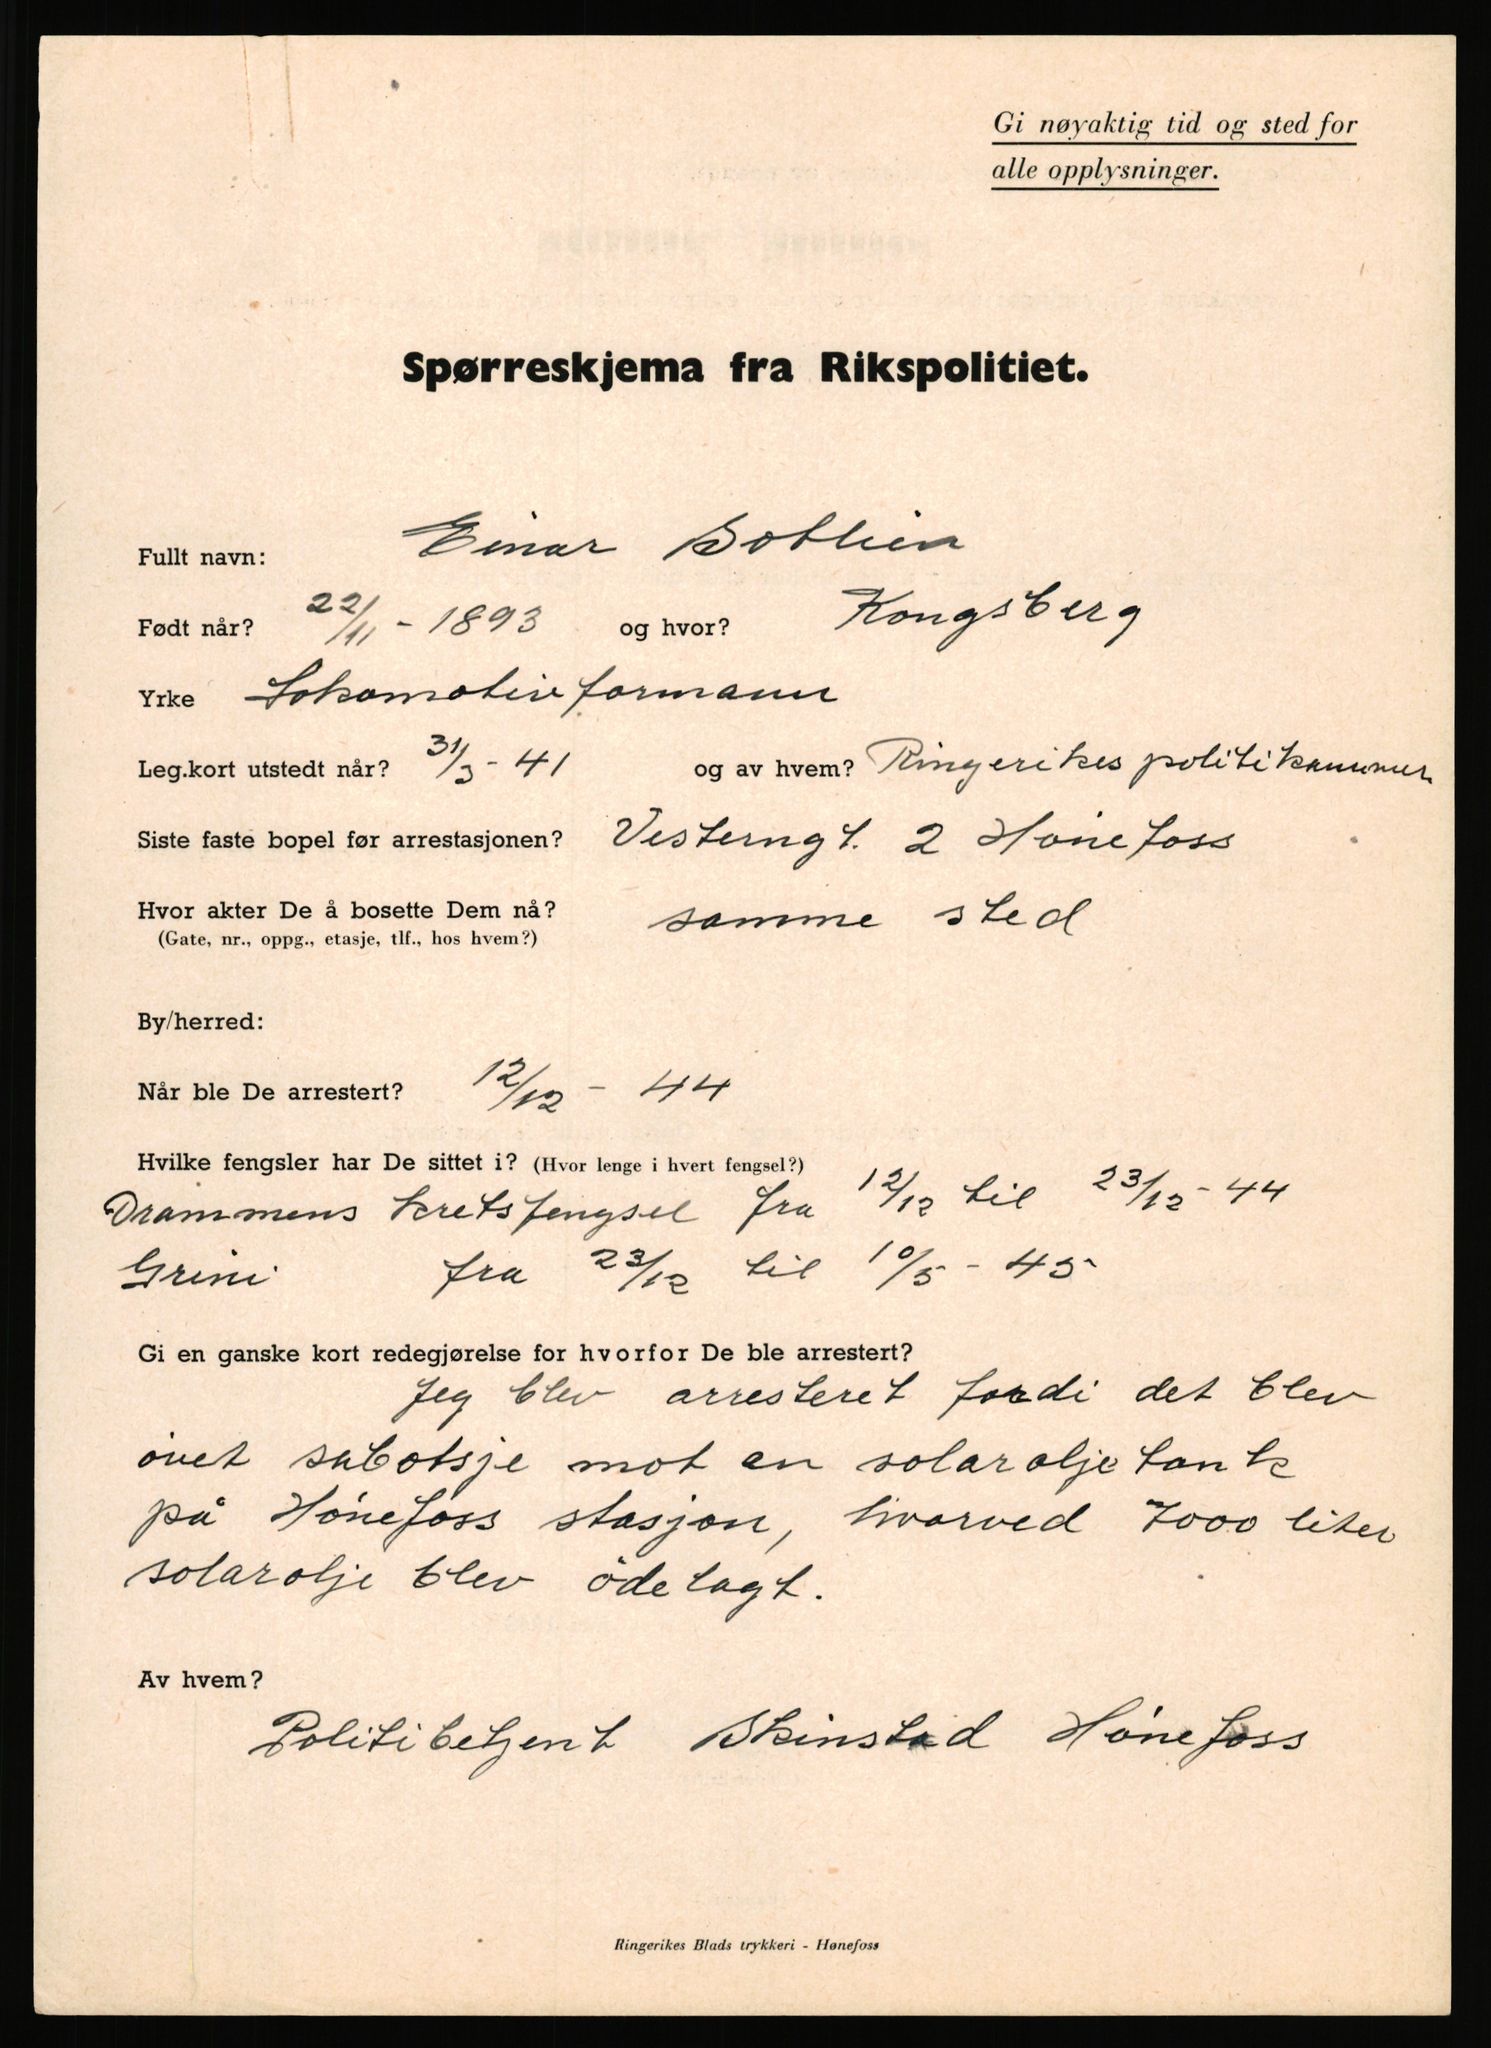 Gi nøyaktig tid og sted for
alle opplysninger.
Spørreskjema fra Rikspolitiet.
Fullt navn: Einar Sotlien
Født når? 22/11 - 1893 og hvor? Kongsberg
Yrke Lokomotivformann
Leg.kort utstedt når? 31/3 - 41 og av hvem? Ringerikes politikammer
Siste faste bopel før arrestasjonen? Vesterngt. 2 Hønefoss
Hvor akter De å bosette Dem nå? samme sted
(Gate, nr., oppg., etasje, tlf., hos hvem?)
By/herred:
Når ble De arrestert? 12/12 - 44
Hvilke fengsler har De sittet i? (Hvor lenge i hvert fengsel?)
Drammens kretsfengsel fra 12/12 til 23/12 - 44
Grini fra 23/12 til 10/5 - 45
Gi en ganske kort redegjørelse for hvorfor De ble arrestert?
Jeg blev arresteret fordi det blev
øvet sabotsje mot en solaroljetank
på Hønefoss stasjon, hvorved 7000 liter
solarolje blev ødelagt.
Av hvem?
Politibetjent Skinstad Hønefoss
Ringerikes Blads trykkeri - Hønefoss